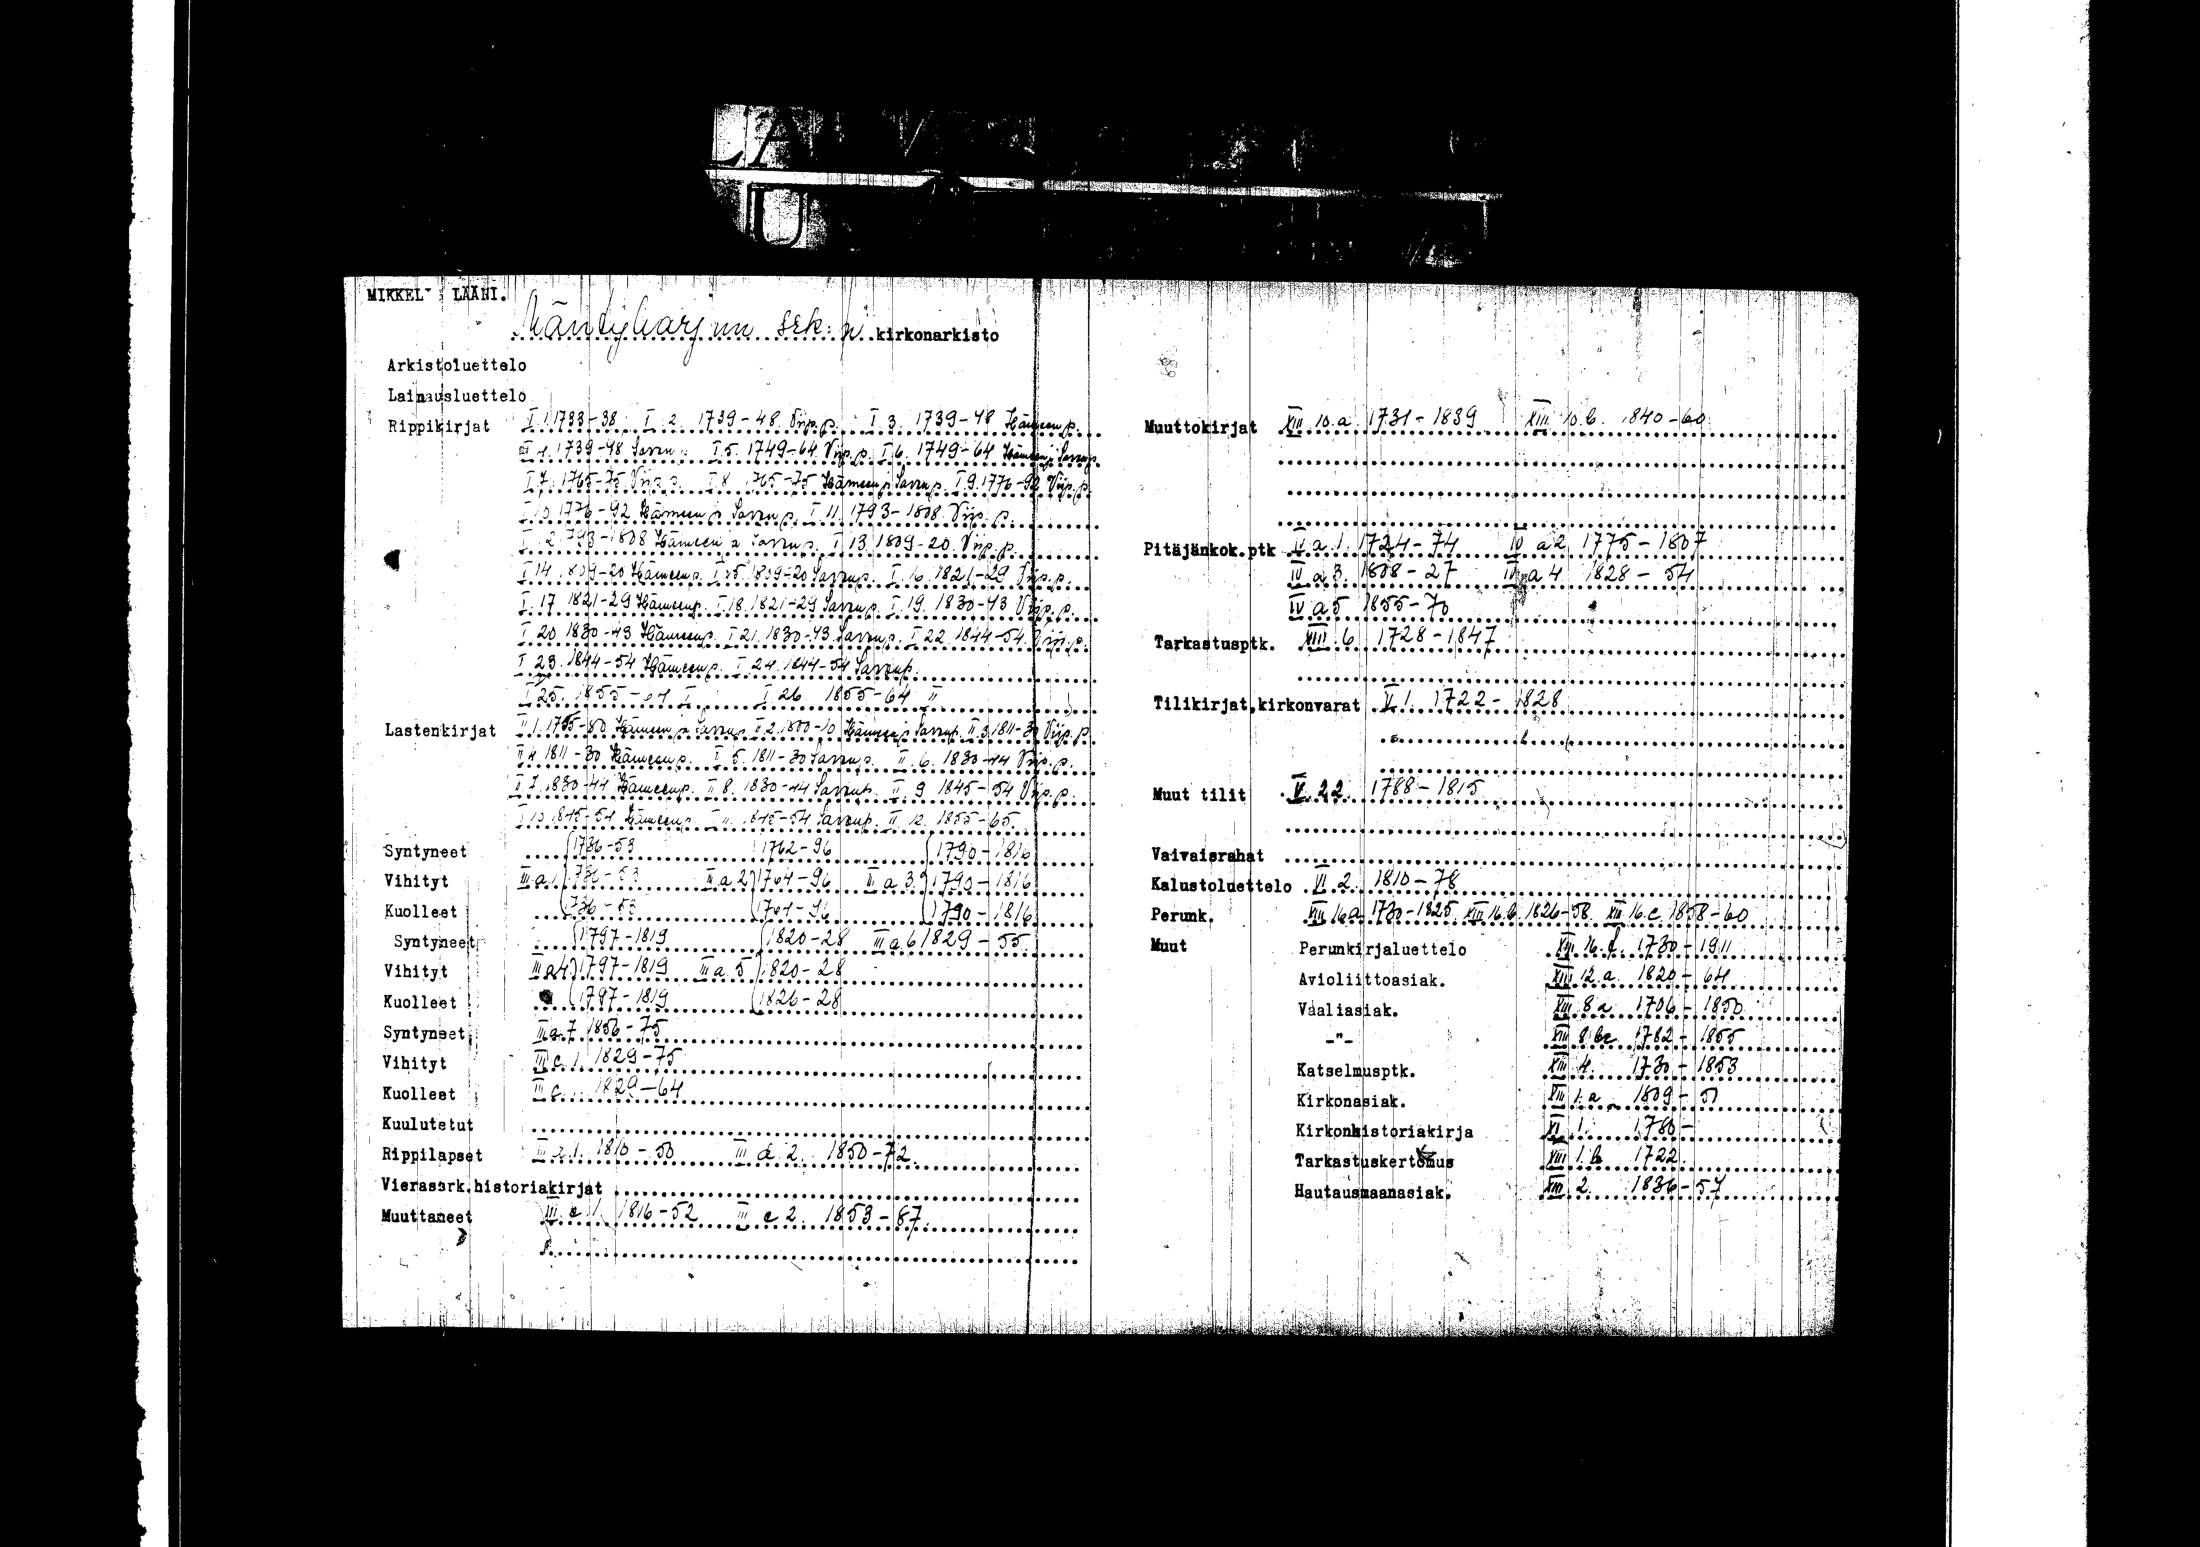 LÄÄNI.
Mäntyharjun srk:n kirkonarkisto
Arkistoluettelo
Lainausluettelo
Rippikirjat I 1. 1733-38 I 2. 1739-48 Viip. p. I 3. 1739-48 Hämeen p.
1739-48 Savon I 5. 1749-64 Viip. p. I 6. 1749-64 Hämeen ja Savon p.
I 7. 1765-75 Viip. p. I 8 1765-75 Hämeen ja Savon p. I 9. 1776-92 Viip. p.
I 10 1776-92 Hämeen ja Savon p. I 11. 1793-1808. Viip. p.
I 12 1793-1808 Hämeen ja Savon p. I 13. 1809-20. Viip. p.
I 14. 1809-20 Hämeen p. I 15. 1809-20 Savon p. I 16. 1821-29 Viip. p.
I 17. 1821-29 Hämeen p. I 18. 1821-29 Savon p. I 19. 1830-43 Viip. p.
I 20. 1830-43 Hämeen p. I 21. 1830-43 Savon p. I 22. 1844-54 Viip. p.
I 23. 1844-54 Hämeen p. I 24. 1844-54 Savon p.
I 25. 1855-64 I I 26 1855-64 II
Lastenkirjat II 1. Hämeen ja Savon p II 2. 1800-10 Hämeen ja Savon p. II 3. 1811-30 Viip. p.
II 4. 1811-30 Hämeen p. II 5. 1811-30 Savon p. II 6. 1830-44 Viip. p.
II 7. 1830-44 Hämeen p. II 8. 1830-44 Savon p. II 9 1845-54 Viip. p.
II 10 1845-54 Hämeen p. II 11. 1845-54 Savon p. II 12. 1855-65.
Syntyneet 1736-53 1762-96 1790-1816
Vihityt III a 1 1736-53 III a 2 1764-96 III a 3 1790-1816
Kuolleet 1736-53 1764-96 1790-1816
Syntyneet 1797-1819 1820-28 III a 6 1829-55.
Vihityt III a 4 1797-1819 III a 5 1820-28
Kuolleet 1797-1819 1826-28
Syntyneet III a 7 1856-75
Vihityt III c. 1. 1829-75
Kuolleet 1829-64
Kuulutetut
Rippilapset 1. 1810-50 III d. 2. 1850-72.
Vierassrk.historiakirjat
Muuttaneet III e 1. 1816-52 III e 2. 1853-87.
Muuttokirjat XIII 10.a. 1731-1839 XIII 10.b. 1840-60
Pitäjänkok.ptk IV a 1. 1724-74 IV a 2 1775-1807
IV a 3. 1808-27 IV a 4 1828-54
IV a 5 1855-70
Tarkastusptk. XIII 6 1728-1847
Tilikirjat,kirkonvarat V 1. 1722-1828
Muut tilit V. 22. 1788-1815
Vaivaisrahat
Kalustoluettelo VI 2. 1810-78
Perunk. XIII 16a 1730-1825. XIII 16.b. 1826-58. XIII 16.c. 1858-60
Muut Perunkirjaluettelo XIII 16. d. 1730-1911
Avioliittoasiak. XIII 12.a. 1820-64
Vaaliasiak. XIII 8 a 1706-1850
-"- XIII 8 1782-1855
Katselmusptk. XIII 4. 1730-1853
Kirkonasiak. XIII 1.a 1809-51
Kirkonhistoriakirja XI 1. 1780-
Tarkastuskertomus XIII 1.b 1722.
Hautausmaanasiak. XIII 2. 1836-57